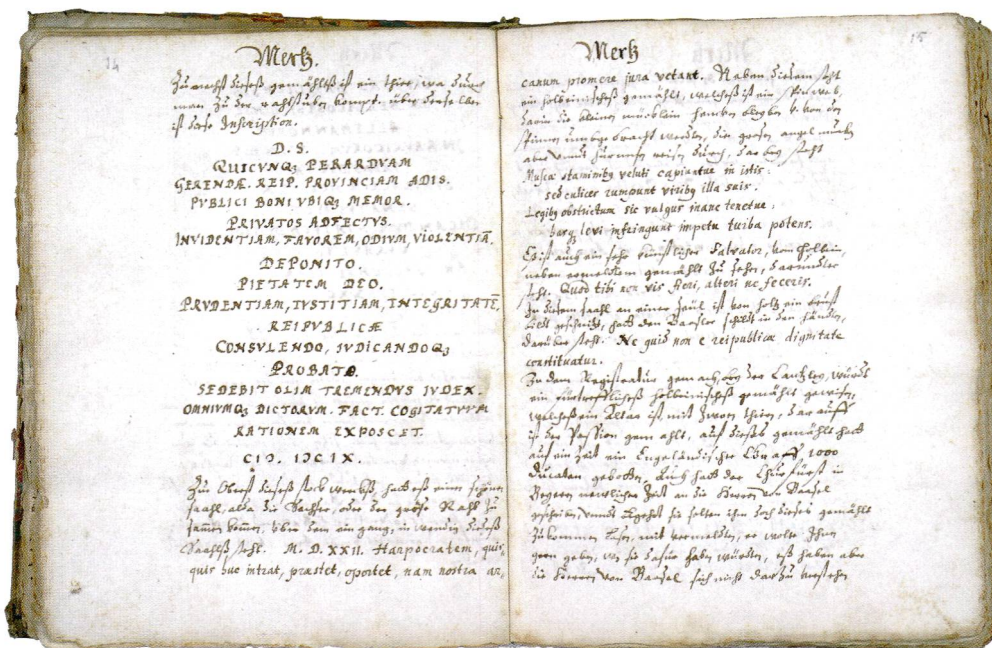 14
Mertz.
Zu nechst dieseß gemähltß ist ein thier, wa durch
man zu der rahtstuben kompt. über derselben
ist diese Inscription.
D. S.
QUICVNQ₃ PERARDVAM
GERENDÆ. REIP. PROVINCIAM ADIS.
PVBLICI BONI VBIQ₃ MEMOR.
PRIVATOS ADFECTVS.
INVIDENTIAM, FAVOREM, ODIVM, VIOLENTIĀ.
DEPONITO.
PIETATEM DEO.
PRVDENTIAM, IVSTITIAM, INTEGRITATĒ,
REIPVBLICÆ
CONSVLENDO, IVDICANDOQ₃
PROBATO.
SEDEBIT OLIM TREMENDVS IVDEX.
OMNIVMQ₃ DICTORVM. FACT. COGITATVVM
RATIONEM EXPOSCET.
CIↃ. IↃCIX.
Zu Oberst dieseß hatt eß einen schönen
saahl, alda die oder der große Raht zu
samen komen. über dem ein gang, inwendig dieseß
Saahlß steht. M. D. XXII. Harpocratem, quis,
quis huc intrat, præstet, oportet, nam nostra ar,
15
Mertz
canum promere jura vetant. Neben diesem steht
ein holbeinischeß gemählt, welcheß ist ein spinweb,
darin die kleinen mücklein von den
spinnen umbgebracht werden, die großen
aber durch, darbey steht
Muscæ staminibꝰ veluti capiantur in istis:
sed culices rumpunt viribꝰ illa suis.
Legibꝰ obstrictum sic vulgus inane tenetur,
hasq₃ levi infringunt impetu turba potens.
Eß ist auch ein sehr künstlicher Salvator, vom Holbein,
neben ermeldtem gemählt zu sehen, darunder
steht. Quod tibi non vis fieri, alteri ne feceris.
In diesem saahl an einer saul ist von holtz ein
bildt geschnitzt, hatt den Baasler schildt in den händen,
darüber steht. Ne quid non e reipublicæ dignitate
constituatur.
In dem Registratur gemach, bey der Cantzley, würdt
ein fürtrefflicheß holbeinischeß gemählt gewisen,
welcheß ein Altar ist mit zween thüren, darauff
ist der Passion gemahlt, auf dieseß gemählt hatt
auf ein zeit ein Engelandischer 1000
Ducaten gebotten. Auch hatt der Churfürst in
Beyern newlicher zeit an die Herren von Baasel
geschriben, unndt begehrt sie solten ihm doch dieseß gemählt
zukommen lasen, mit vermelden, er wolte Ihnen
gern geben, was sie dafür haben würdten, eß haben aber
die Herren von Baasel sich nicht darzu verstehen